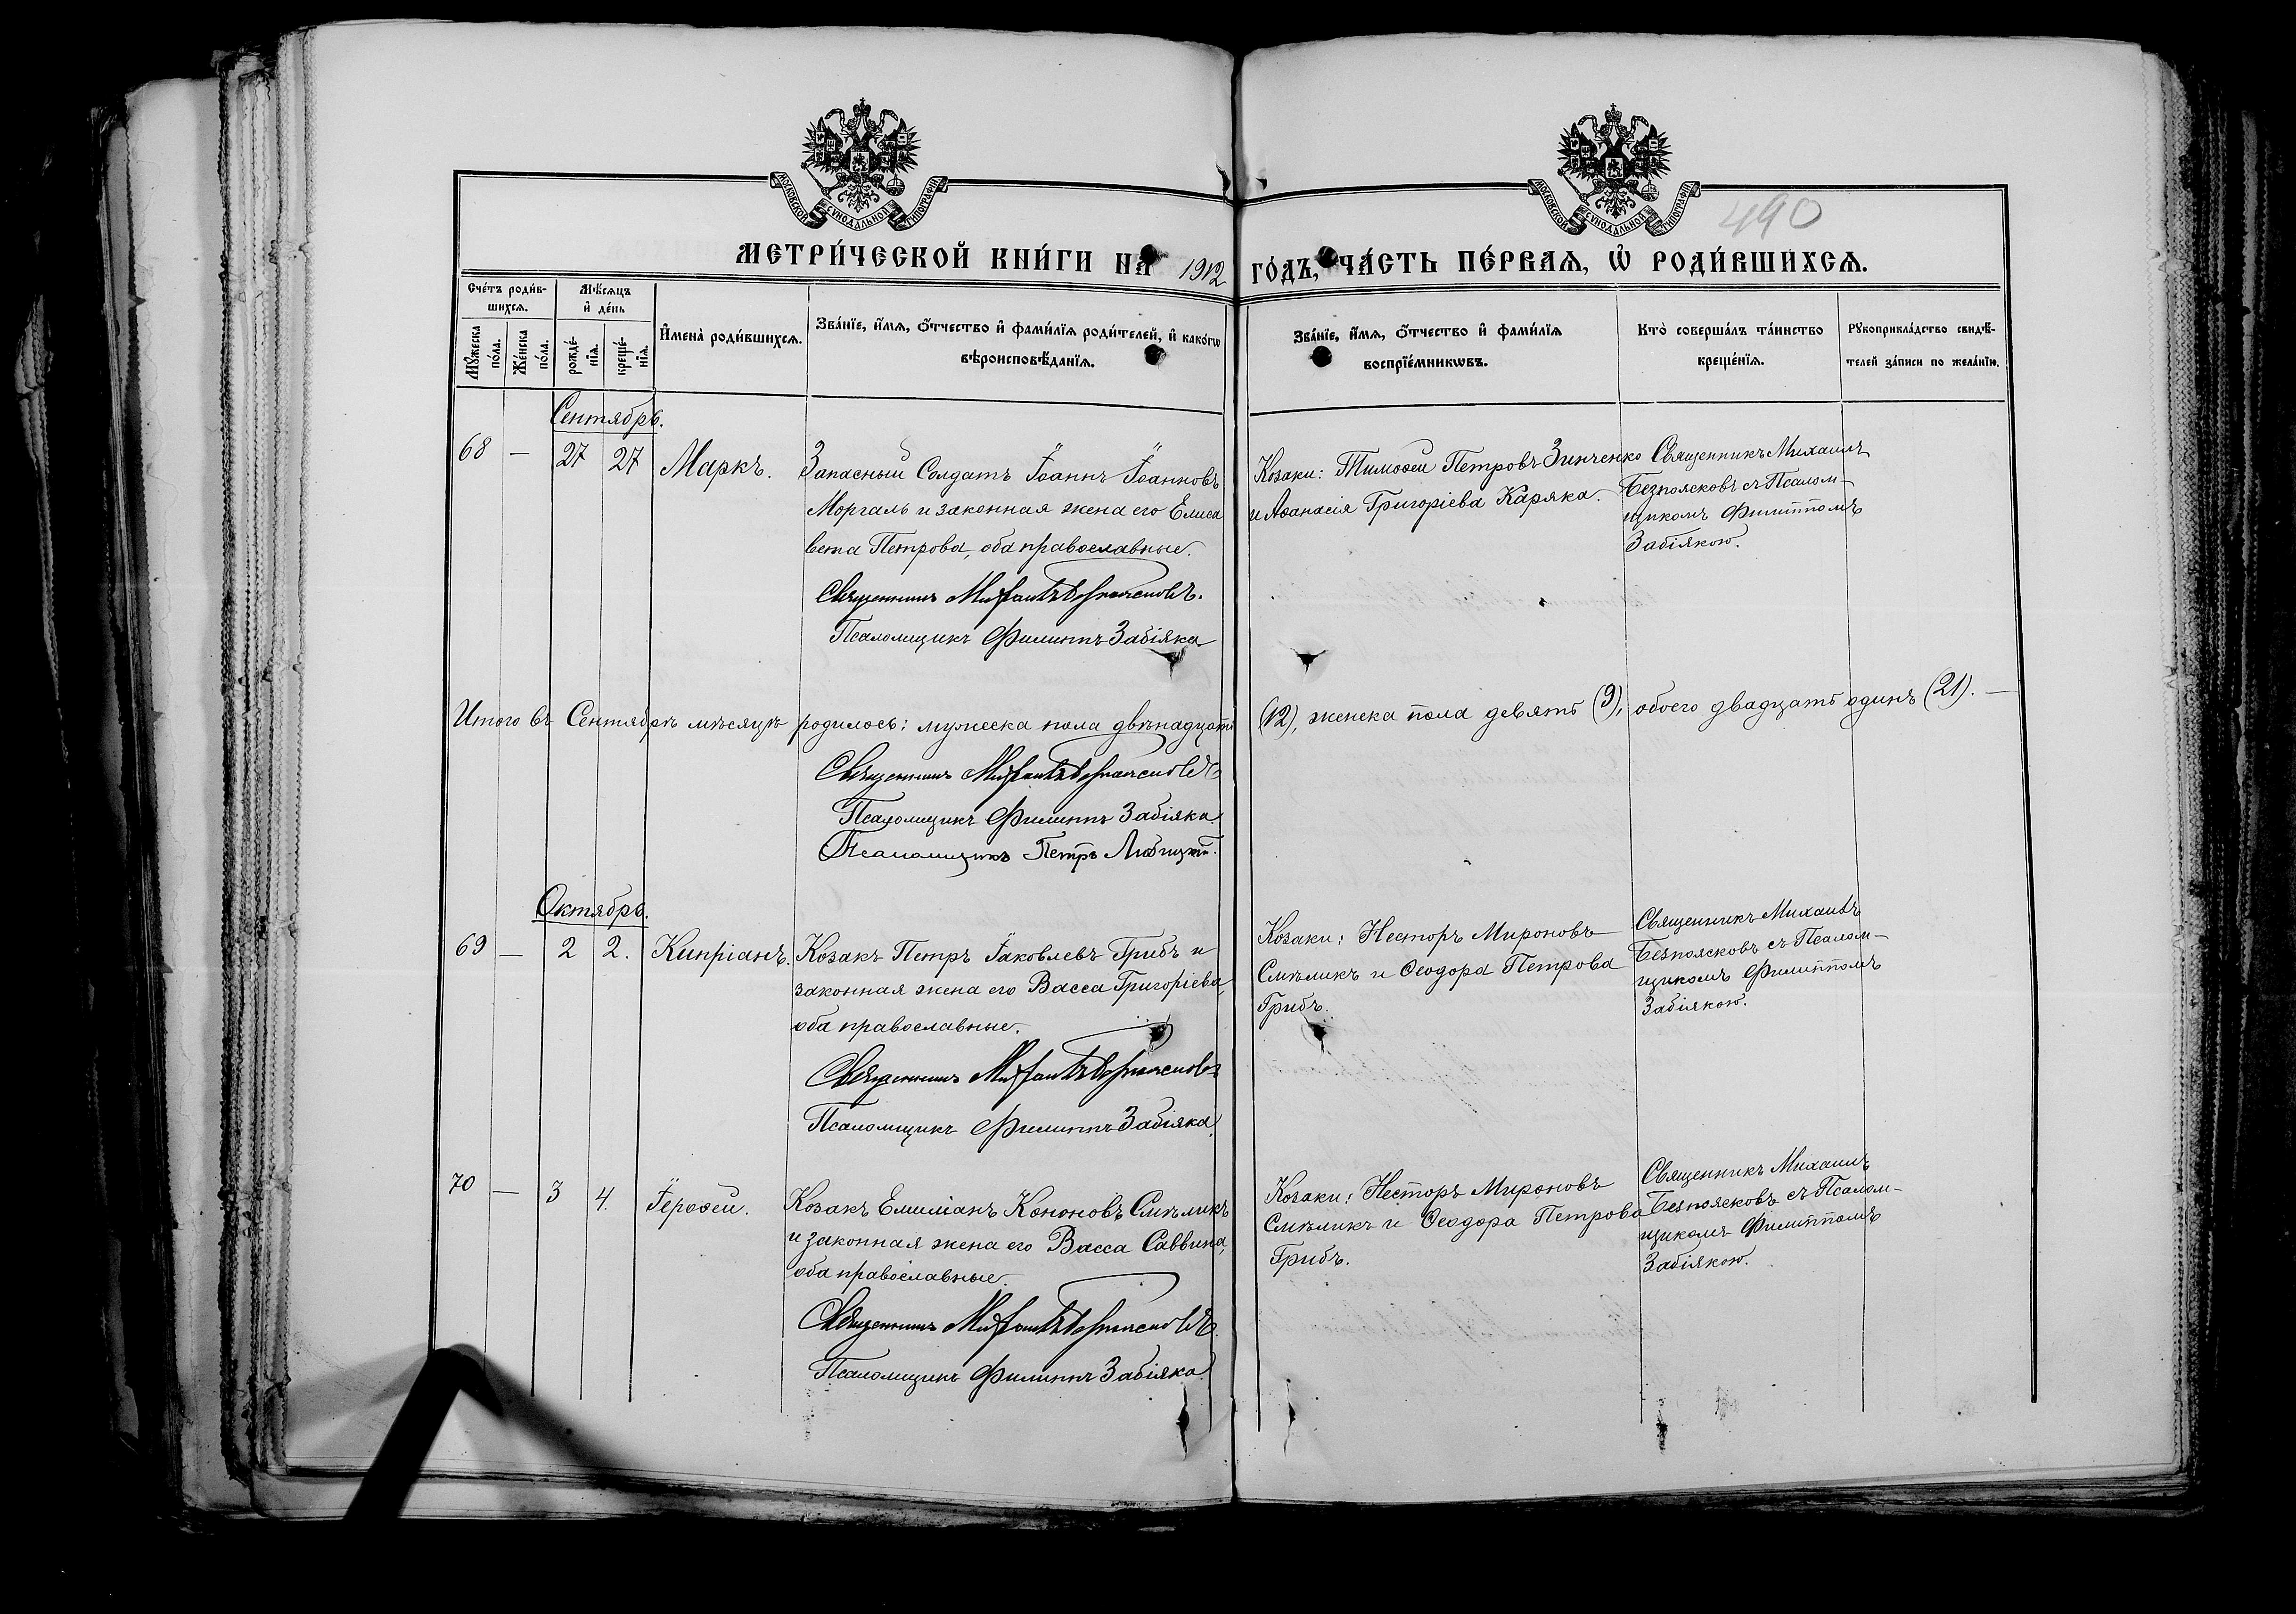 МОСКОВСКОЙ СУНОДАЛЬНОЙ ТИПОГРАФІИ
МОСКОВСКОЙ СУНОДАЛЬНОЙ ТИПОГРАФІИ
490
МЕТРИ́ЧЕСКОЙ КНИ́ГИ НА 1912 ГО́ДЪ, ЧА́СТЬ ПЕ́РВАѦ, Ѽ РОДИ́ВШИХСѦ.
Сче́тъ роди́в-
шихсѧ.
Мꙋ́жеска по́ла.
Же́нска по́ла.
Мѣ́сѧцъ
и҆ де́нь
рожде́-
нїѧ.
креще́-
нїѧ.
И҆мена̀ роди́вшихсѧ.
Зва́нїе, и҆́мѧ, ѻ҆́тчество и҆ фами́лїѧ роди́телей, и҆ како́гѡ
вѣроисповѣ́данїѧ.
Зва́нїе, и҆́мѧ, ѻ҆́тчество и҆ фами́лїѧ
воспрїе́мникѡвъ.
Кто̀ соверша́лъ та́инство
креще́нїѧ.
Рꙋкоприкла́дство свидѣ́-
телей за́писи по жела́нїю.
Сентябрь.
68 — 27 27 Маркъ.
Запасный Солдатъ Іоаннъ Іоанновъ
Моргаль и законная жена его Елиса
вета Петрова, оба православные.
Священникъ Михаилъ Безпоясковъ.
Псаломщикъ Филиппъ Забіяка
Козаки: Тимоѳей Петровъ Зинченко
и Аѳанасія Григоріева Каряка.
Священникъ Михаилъ
Безпоясковъ съ Псалом-
щикомъ Филиппомъ
Забіякою.
Итого въ Сентябрѣ мѣсяцѣ родилось: мужеска пола двѣнадцать (12), женска пола девять (9), обоего двадцать одинъ (21). —
Священникъ Михаилъ Безпоясковъ
Псаломщикъ Филиппъ Забіяка.
Псаломщикъ Петръ
Октябрь.
69 — 2 2. Кипріанъ.
Козакъ Петръ Іаковлевъ Грибъ и
законная жена его Васса Григоріева,
оба православные.
Священникъ Михаилъ Безпоясковъ
Псаломщикъ Филиппъ Забіяка.
Козаки: Несторъ Мироновъ
Смѣликъ и Ѳеодора Петрова
Грибъ.
Священникъ Михаилъ
Безпоясковъ съ Псалом-
щикомъ Филиппомъ
Забіякою.
70 — 3 4. Іероѳей.
Козакъ Емиліанъ Кононовъ Смѣликъ
и законная жена его Васса Саввина,
оба православные.
Священникъ Михаилъ Безпоясковъ.
Псаломщикъ Филиппъ Забіяка
Козаки: Несторъ Мироновъ
Смѣликъ и Ѳеодора Петрова
Грибъ.
Священникъ Михаилъ
Безпоясковъ съ Псалом-
щикомъ Филиппомъ
Забіякою.